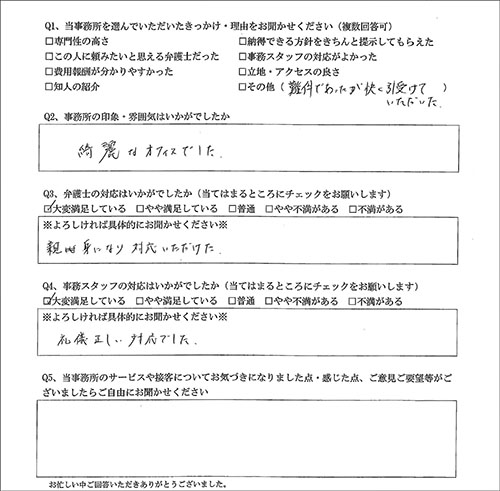 Q1、当事務所を選んでいただいたきっかけ・理由をお聞かせください（複数回答可）
□専門性の高さ □納得できる方針をきちんと提示してもらえた
□この人に頼みたいと思える弁護士だった □事務スタッフの対応がよかった
□費用報酬が分かりやすかった □立地・アクセスの良さ
□知人の紹介 □その他（難件であったが快く引受けて
いただいた。）
Q2、事務所の印象・雰囲気はいかがでしたか
綺麗なオフィスでした。
Q3、弁護士の対応はいかがでしたか（当てはまるところにチェックをお願いします）
☑大変満足している □やや満足している □普通 □やや不満がある □不満がある
※よろしければ具体的にお聞かせください※
親身になり対応いただけた。
Q4、事務スタッフの対応はいかがでしたか（当てはまるところにチェックをお願いします）
☑大変満足している □やや満足している □普通 □やや不満がある □不満がある
※よろしければ具体的にお聞かせください※
礼儀正しい対応でした。
Q5、当事務所のサービスや接客についてお気づきになりました点・感じた点、ご意見ご要望等がご
ざいましたらご自由にお聞かせください
お忙しい中ご回答いただきありがとうございました。